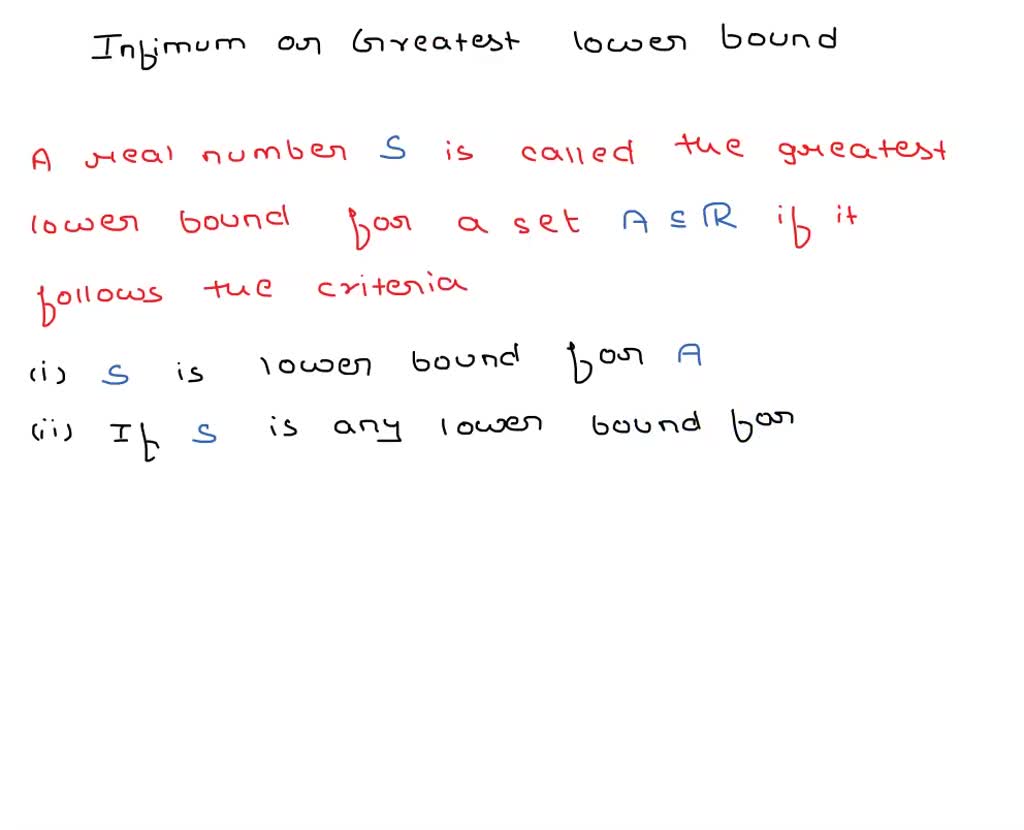 Infimum or Greatest lower bound
A real number S is called the greatest
lower bound for a set A ⊆ ℝ if it
follows the criteria
(i) S is lower bound for A
(ii) If S is any lower bound for